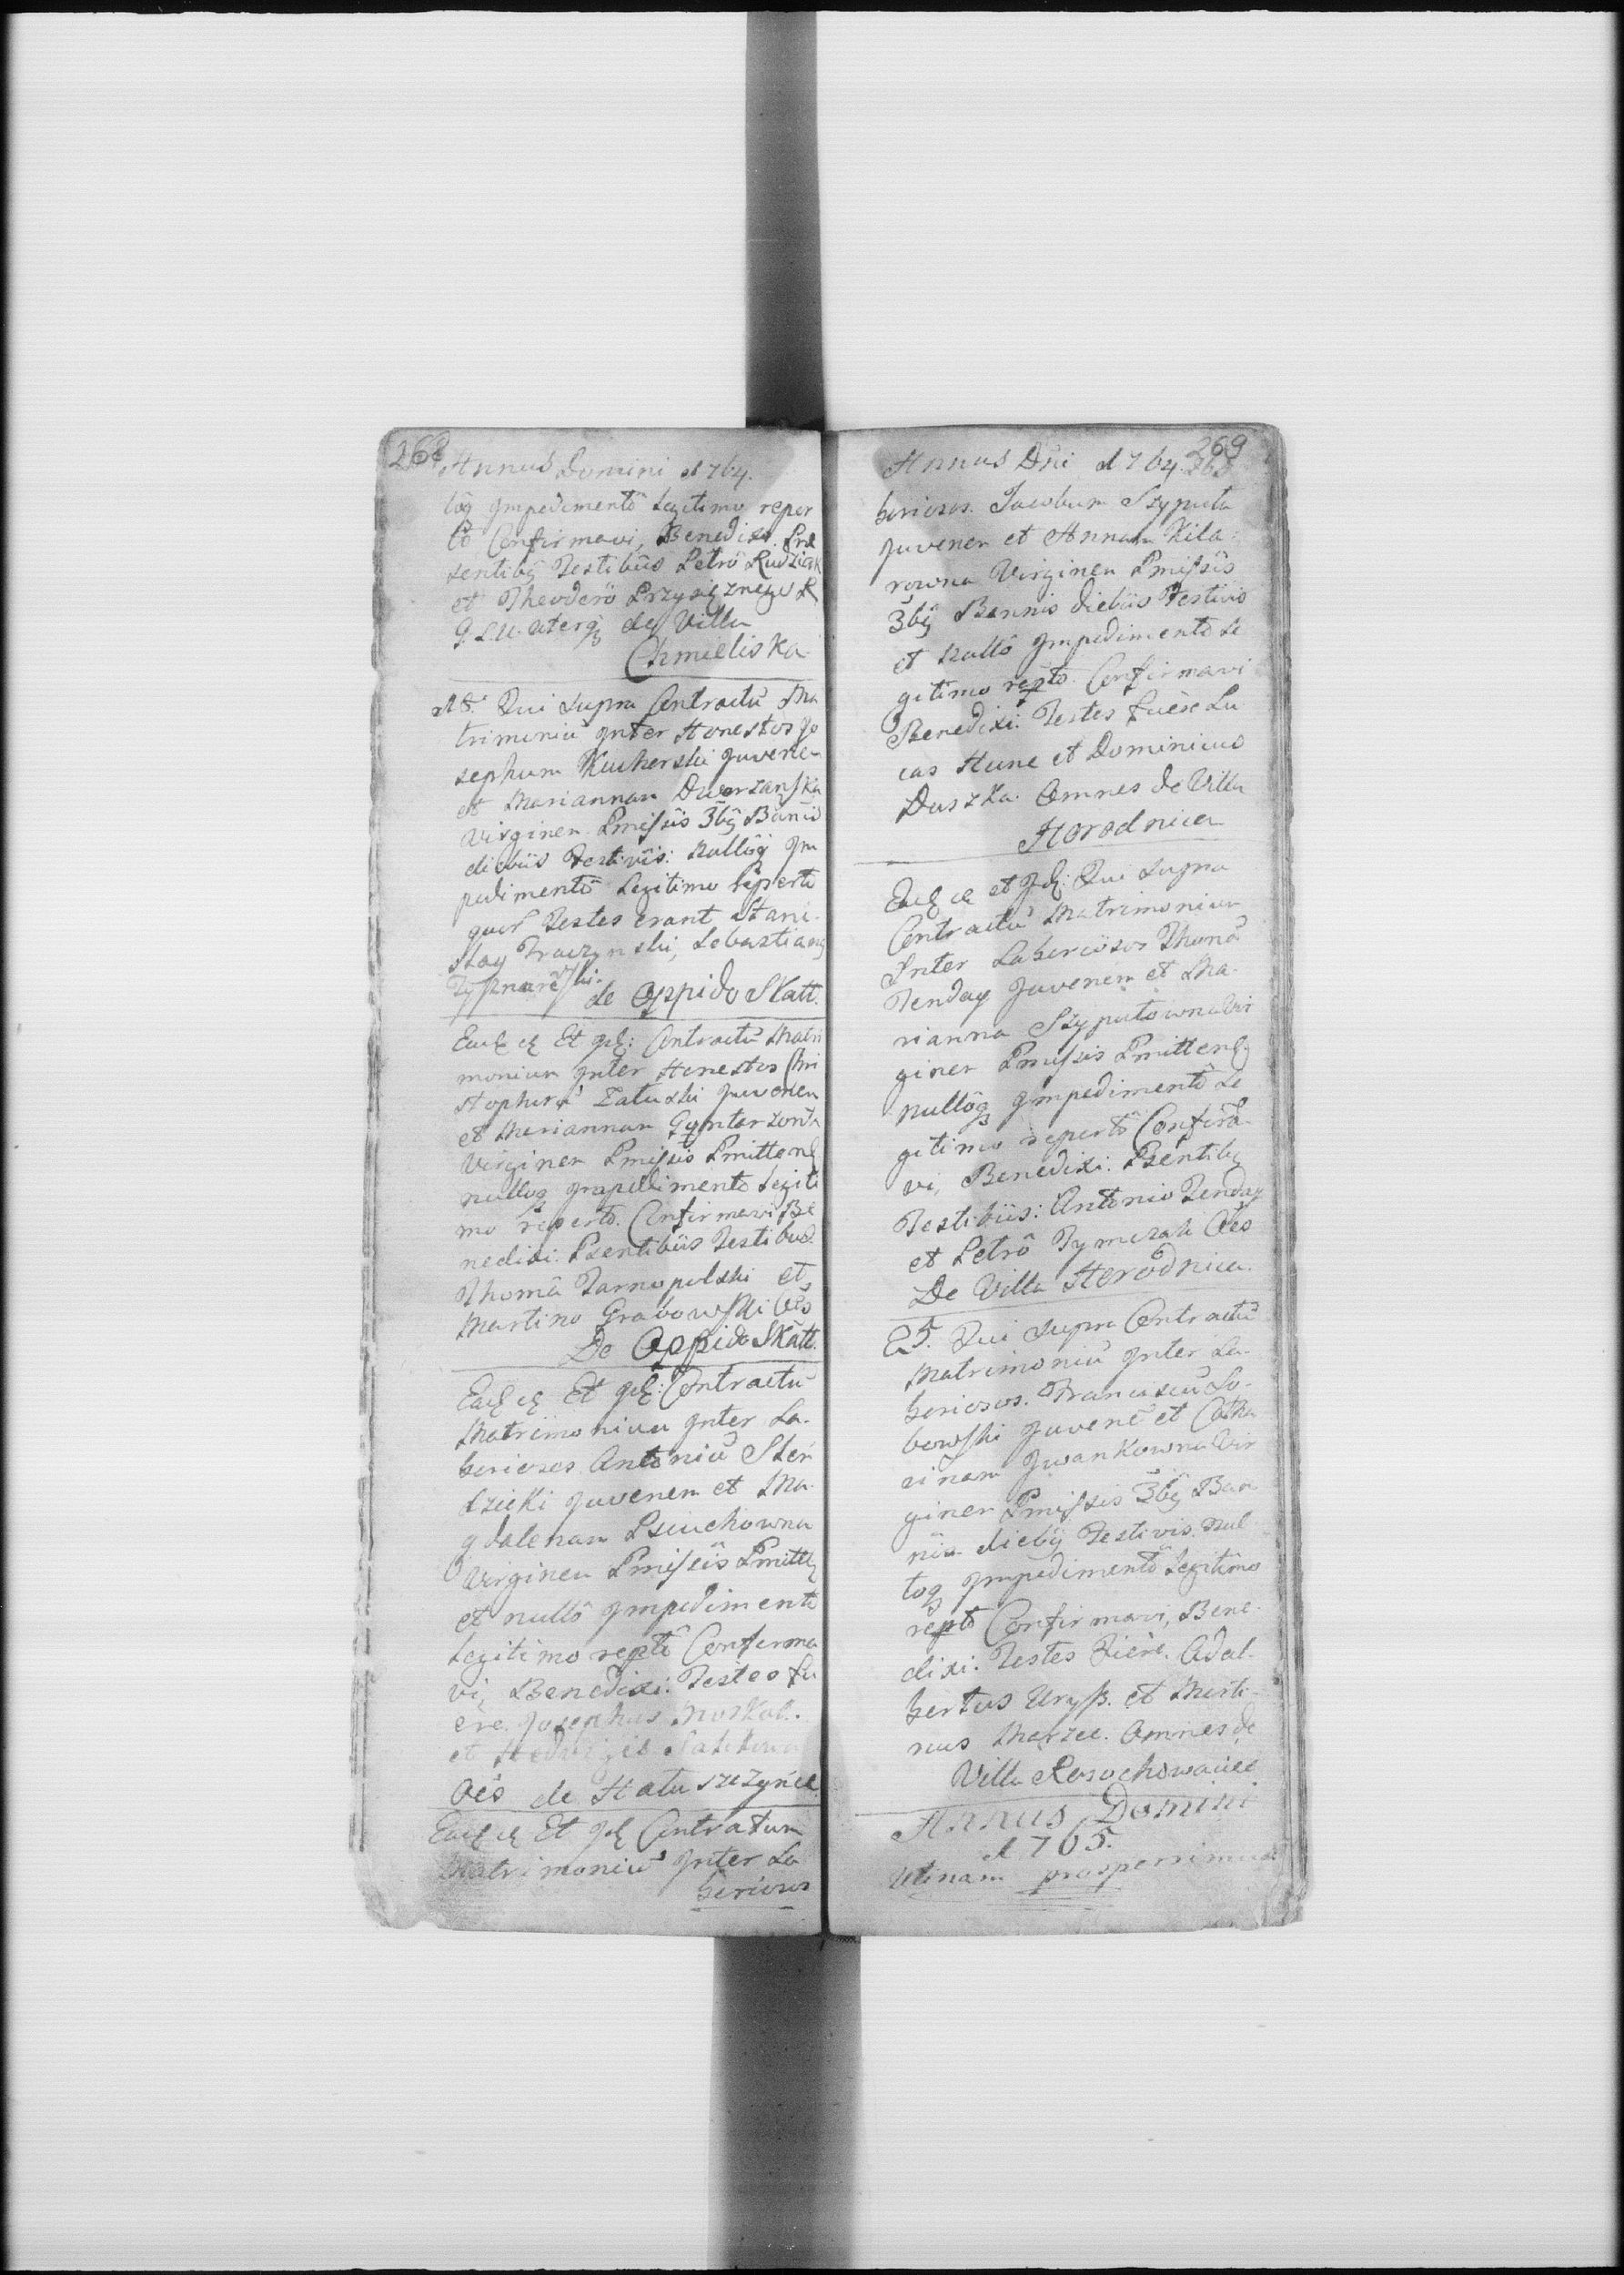 268
Annus Domini 1764.
loq Impedimentô Legitimo reper
tô Confirmavi, Benedixi. Præ
sentibq Testibus Petrô Rudziak
et Theodorô Przysięznego R
G.L.U. uterq de Villa
Chmieliska
18. Qui supra Contractū Ma
trimoniū Inter Honestos Jo
sephum Kucherski Juvenem
et Mariannam Dworzanska
Virginem Pmissis 3bq Banis
diebus Festivis: Nullôq Im
pedimentô Legitimo reperto
quor Testes erant Stani-
slaq Traczynski, Sebastianq
de Oppido Skatt.
Eadē Et Contractū Matri
monium Inter Honestos Chri
stophorū Zatuski Juvenem
et Mariannam
Virginem Pmissis Pmitten
nulloq Impedimento Legiti
mo reperto. Confirmavi Be
nedixi. Psentibus Testibus.
Thomâ Tarnopolski et
Martino Grabowski Oēs
De Oppido Skatt.
Eadē Et Contractū
Matrimonium Inter La-
boriosos Antoniū Sten
dzicki Juvenem et Ma-
gdalenam Psiuchowna
Virginem Pmissis Pmitt
et nullô Impedimento
Legitimo reptô Confirma
vi, Benedixi: Testes fu
ēre. Josephus Moskal.
et Hedvigis
Oēs de Hatuszczynce
Eadē Et Contractum
Matrimoniū Inter La
boriosos
269
Annus Dni 1764.
boriosos. Jacobum Szyputa
Juvenem et Annam Kila-
rowna Virginem Pmissis
3bq Bannis diebus Festivis
et Nullô Impedimentô Le
gitimo reptô. Confirmavi
Benedixi: Testes fuēre Lu
cas Hunc et Dominicus
Duszka. Omnes de Villa
Horodnica
Eadē et Qui supra
Contractū Matrimonium
Inter Laboriosos Thomā
Fenday Juvenem et Ma-
rianna Szyputowna Vir
ginem Pmissis Pmittend
nullôq Impedimentô Le
gitimo repertô Confirma-
vi, Benedixi: Psentibq
Testibus: Antonio Fenday
et Petrô Tymczak Oēs
De Villa Horodnica.
25. Qui supra Contractū
Matrimoniū Inter La-
boriosos. Franciscū So-
bowski Juvenē et Catha
rinam Iwankowna Vir
ginem Pmissis 3bq Ban
nis diebq Festivis. Nul
loq Impedimentô Legitimo
reptô Confirmavi, Bene-
dixi. Testes Fuēre. Adal-
bertus Uryß. et Marti-
nus Marzec. Omnes de
Villa Rosochowaciec
Annus Domini
1765.
Utinam prosperrimus